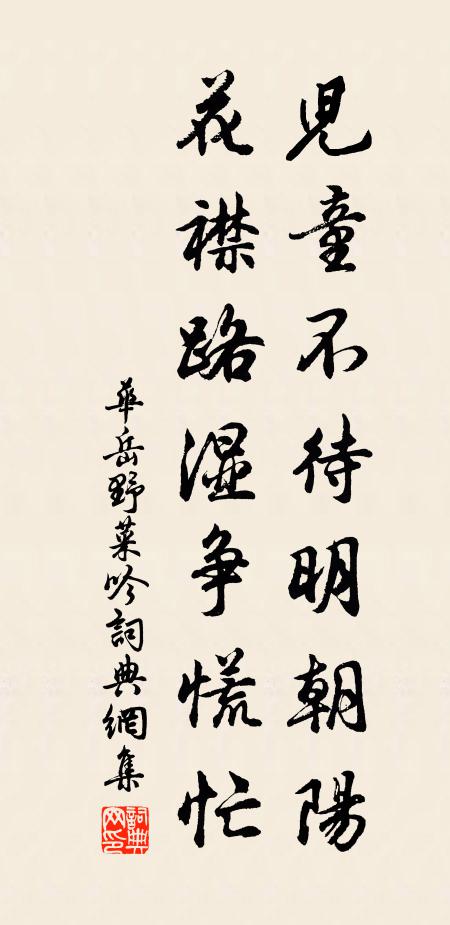 兒童不待明朝陽
花襟路湿争慌忙
華岳野菜吟詞典網集
詞典网印